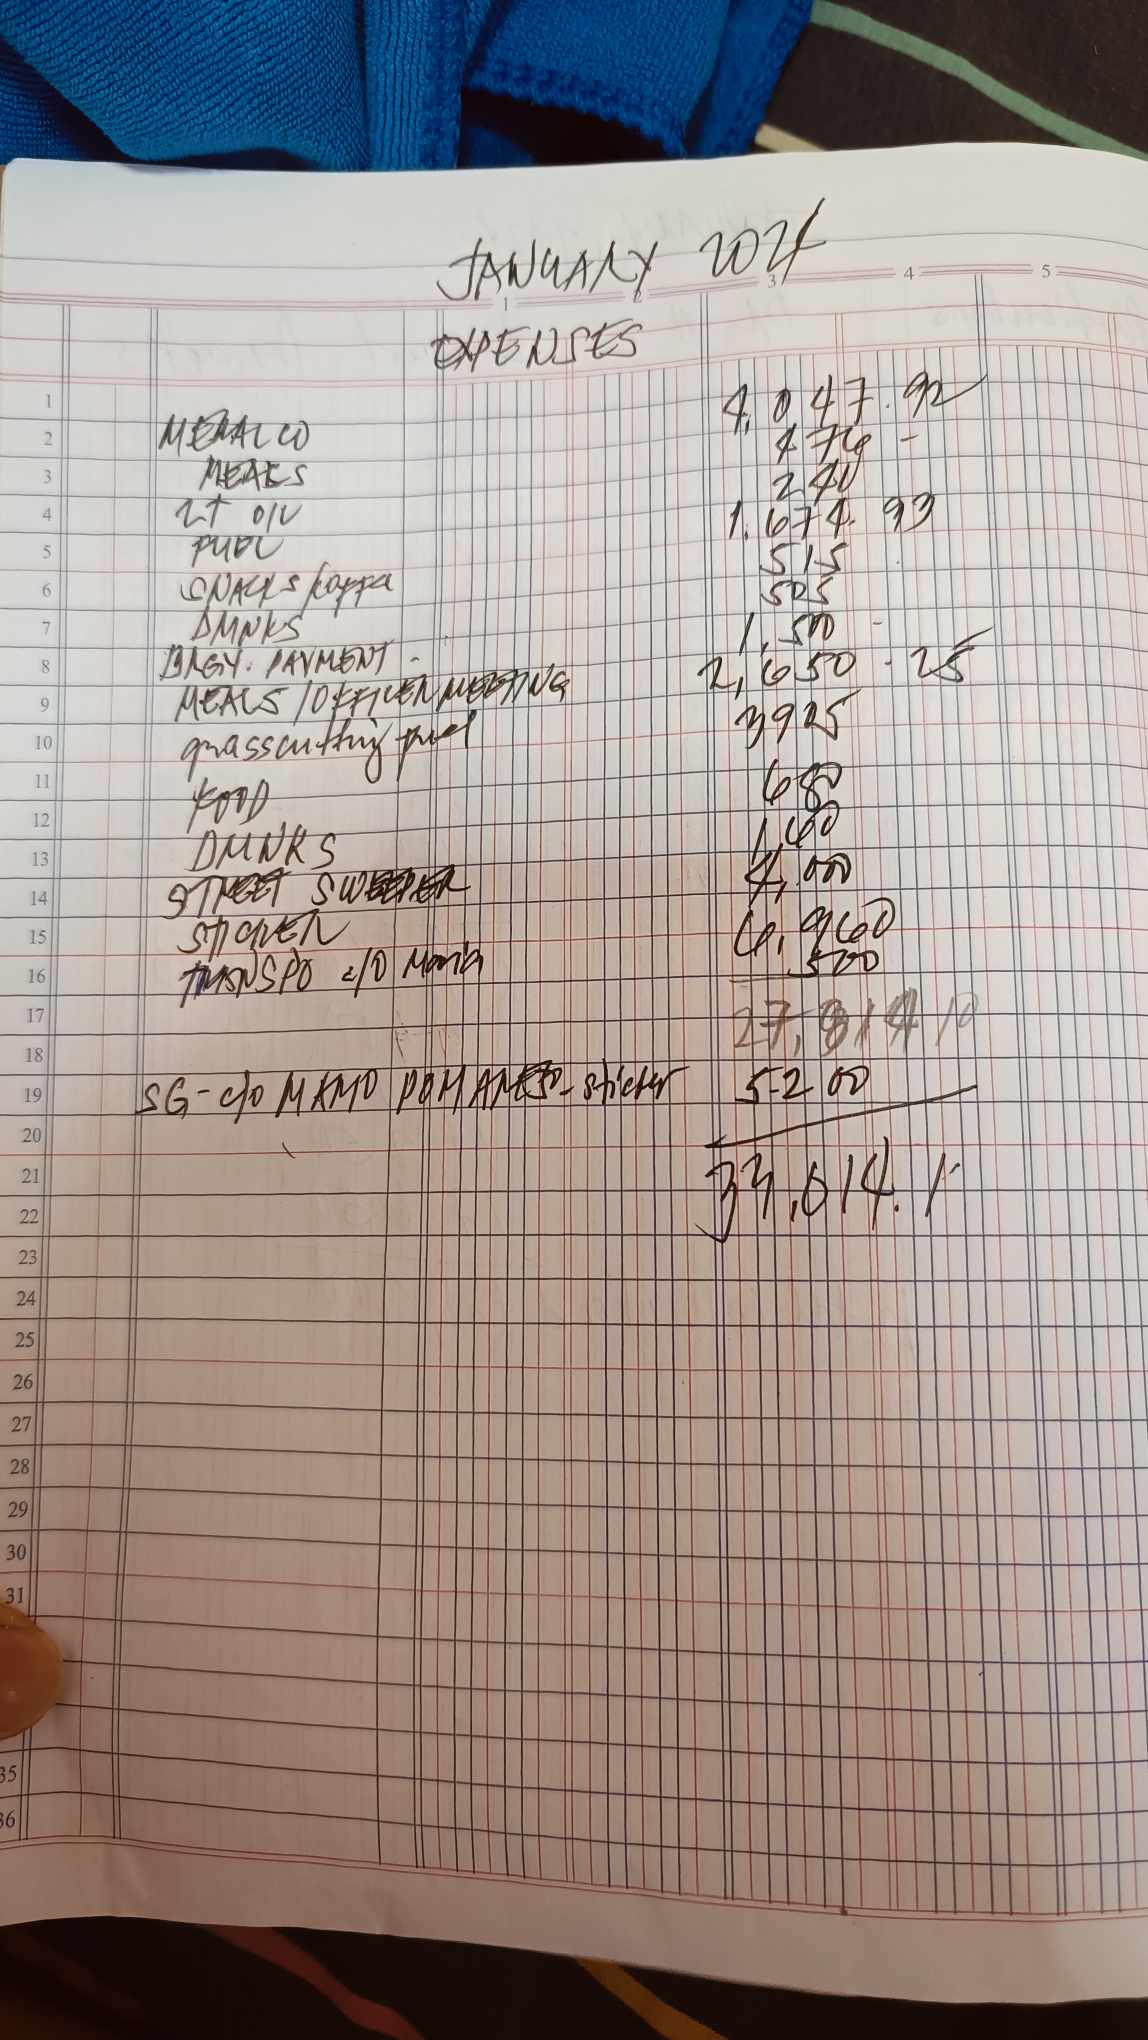 JANUARY 2024
EXPENSES
1 2 3 4 5
1 4,047.92
2 MERALCO 476 -
3 MEALS 240
4 LT O/U 1,674.93
5 FUEL 515
6 SNACKS/kappa 505
7 DRINKS 1,500 -
8 BRGY. PAYMENT - 2,650.25
9 MEALS/OFFICER MEETING 3925
10 grasscutting fuel
11 FOOD 680
12 DRINKS 160
13 STREET SWEEPER 4,000
14 STICKER 6,960
15 TRANSPO c/o Maria 500
16
17 27,814 10
18
19 SG-c/o MAMO - sticker 5200
20
21 33,014.1
22
23
24
25
26
27
28
29
30
31
35
36